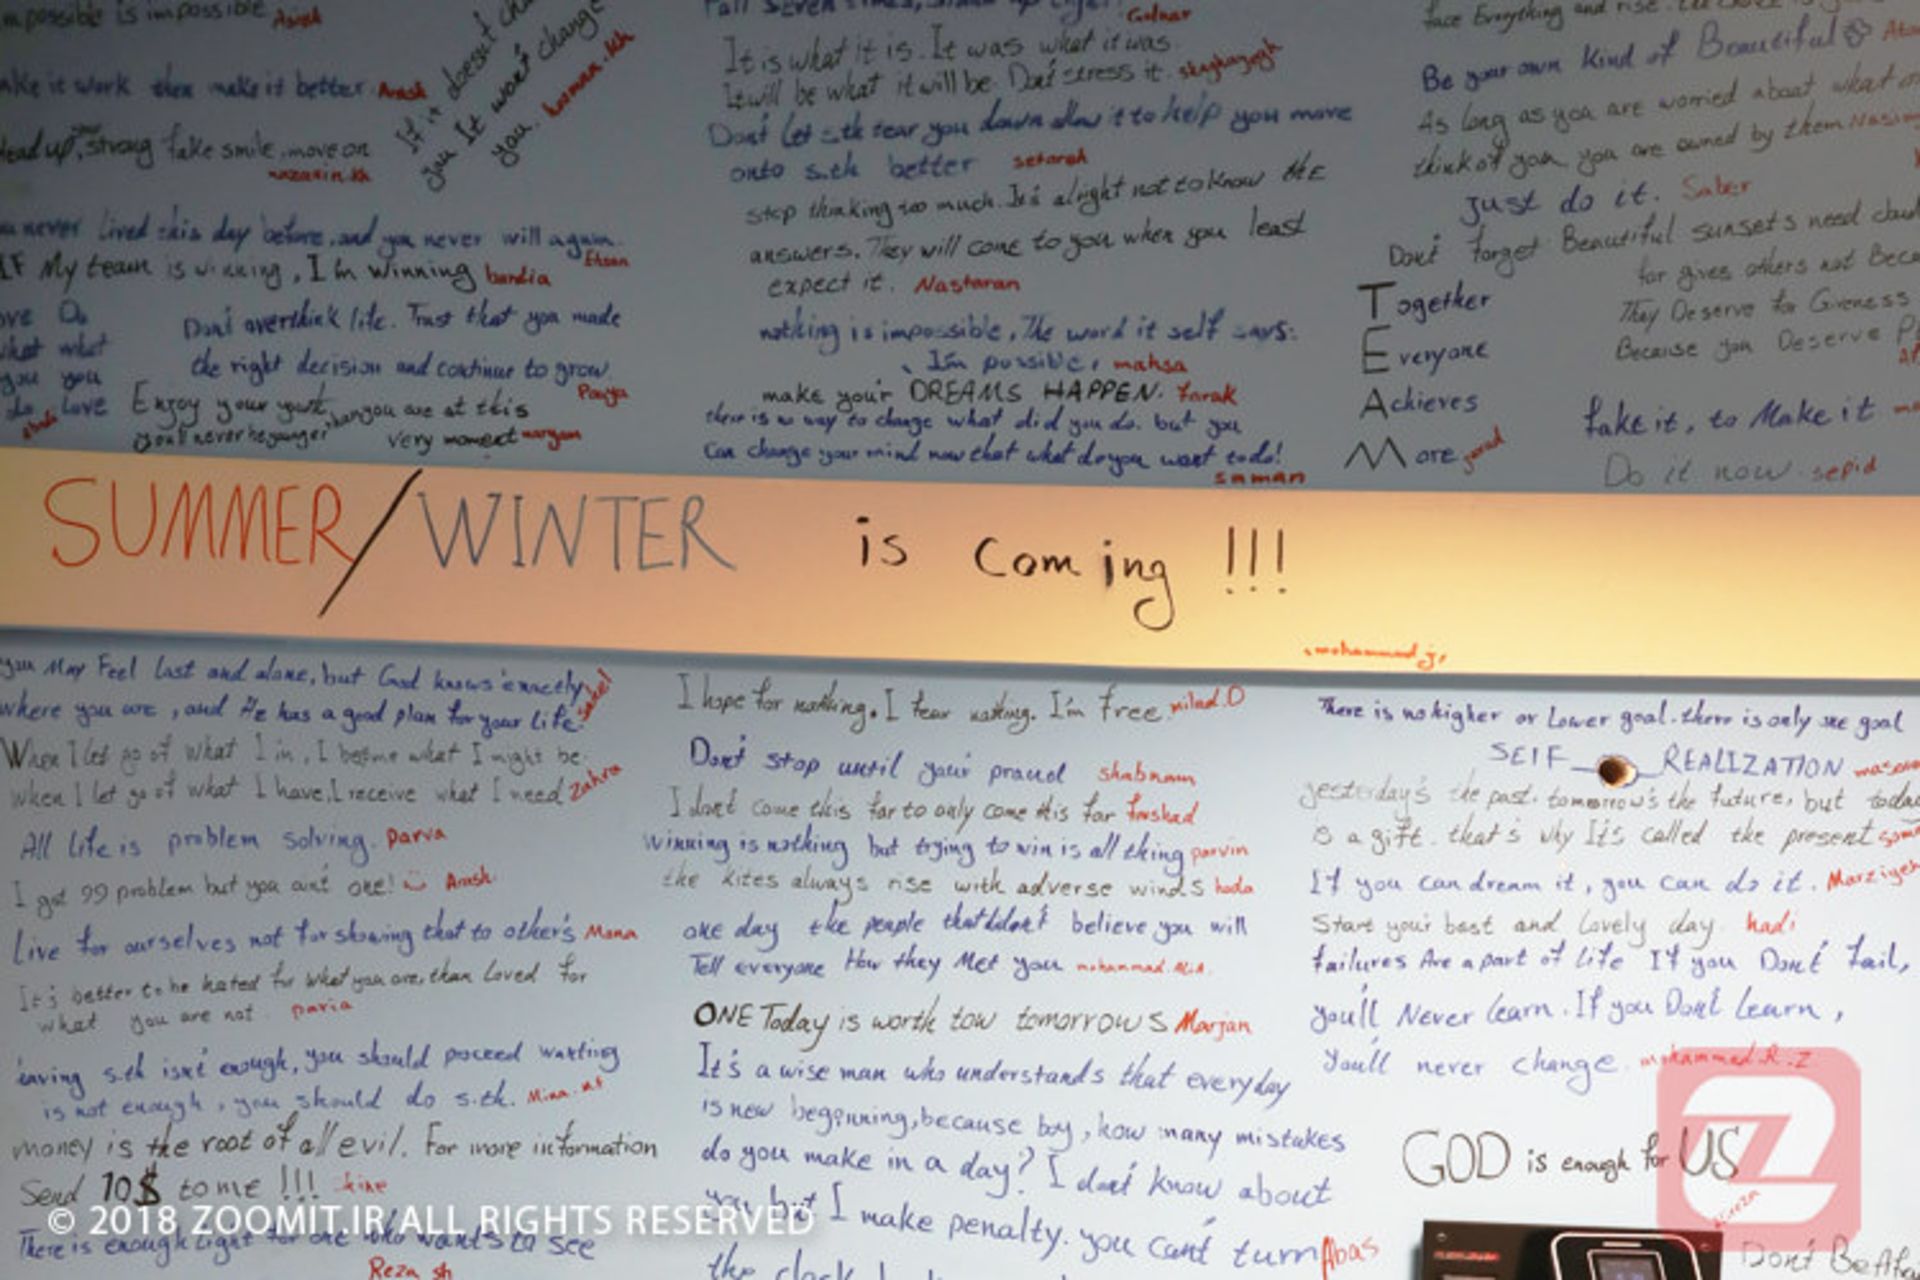 impossible is impossible Arash
make it work then make it better. Arash
Head up, stay strong fake smile, move on
nazanin.kh
If it doesn't
you It won't change
you. hooman.kh
never lived this day before, and you never will again.
Ehsan
IF My team is winning, I'm winning bardia
Do
what what
you you
do love
Don't overthink life. Trust that you made
the right decision and continue to grow.
Pouya
Enjoy your
you are at this
you'll never be younger
very moment maryam
Fall seven times, stand up
Golnar
It is what it is. It was what it was.
It will be what it will be. Don't stress it. shaghayegh
Don't Let s.th tear you down allow it to help you move
onto s.th better setareh
stop thinking too much. It's alright not to know the
answers. They will come to you when you least
expect it. Nastaran
nothing is impossible, The word it self says:
I'm possible, mahsa
make your DREAMS HAPPEN. Farak
there is no way to change what did you do. but you
Can change your mind now that what do you want to do!
saman
face Everything and rise.
Be your own Kind of Beautiful
As long as you are worried about what
think of you, you are owned by them Nasim
Just do it. Saber
Don't forget Beautiful sunsets need
for gives others not Beca
They Deserve for Giveness
Because you Deserve P
Together
Everyone
Achieves
More
fake it, to Make it
Do it now. sepid
SUMMER/WINTER is Coming !!!
mohammad j.
you May Feel Lost and alone, but God knows exactly
where you are, and He has a good plan for your life.
When I let go of what I'm, I become what I might be.
when I let go of what I have, I receive what I need Zahra
All life is problem solving. Parva
I got 99 problem but you ain't one! Arash
Live for ourselves not for showing that to other's Mona
It's better to be hated for what you are, than loved for
what you are not. paria
s.th isn't enough, you should proceed wanting
is not enough, you should do s.th. Mina.
money is the root of all evil. For more information
Send 10$ to me !!!
There is enough light for one who wants to see
Reza sh
I hope for nothing. I fear nothing. I'm Free. milad.D
Don't stop until your proud shabnam
I don't come this far to only come this far farshad
winning is nothing but trying to win is all thing parvin
the kites always rise with adverse winds hoda
one day the people that didn't believe you will
Tell everyone How they Met you mohammad.
ONE Today is worth tow tomorrows Marjan
It's a wise man who understands that everyday
is new beginning, because boy, how many mistakes
do you make in a day? I don't know about
you but I make penalty. you can't turn Abas
the clock
There is no higher or Lower goal. there is only one goal
SELF REALIZATION
yesterday's the past. tomorrow's the future, but today
is a gift. that's why It's called the present
If you can dream it, you can do it. Marziyeh
Start your best and Lovely day hadi
failures Are a part of Life If you Don't fail,
you'll Never Learn. If you Don't Learn,
You'll never change. mohammad.R.Z
GOD is enough for US
Alireza
Don't Be
© 2018 ZOOMIT.IR ALL RIGHTS RESERVED